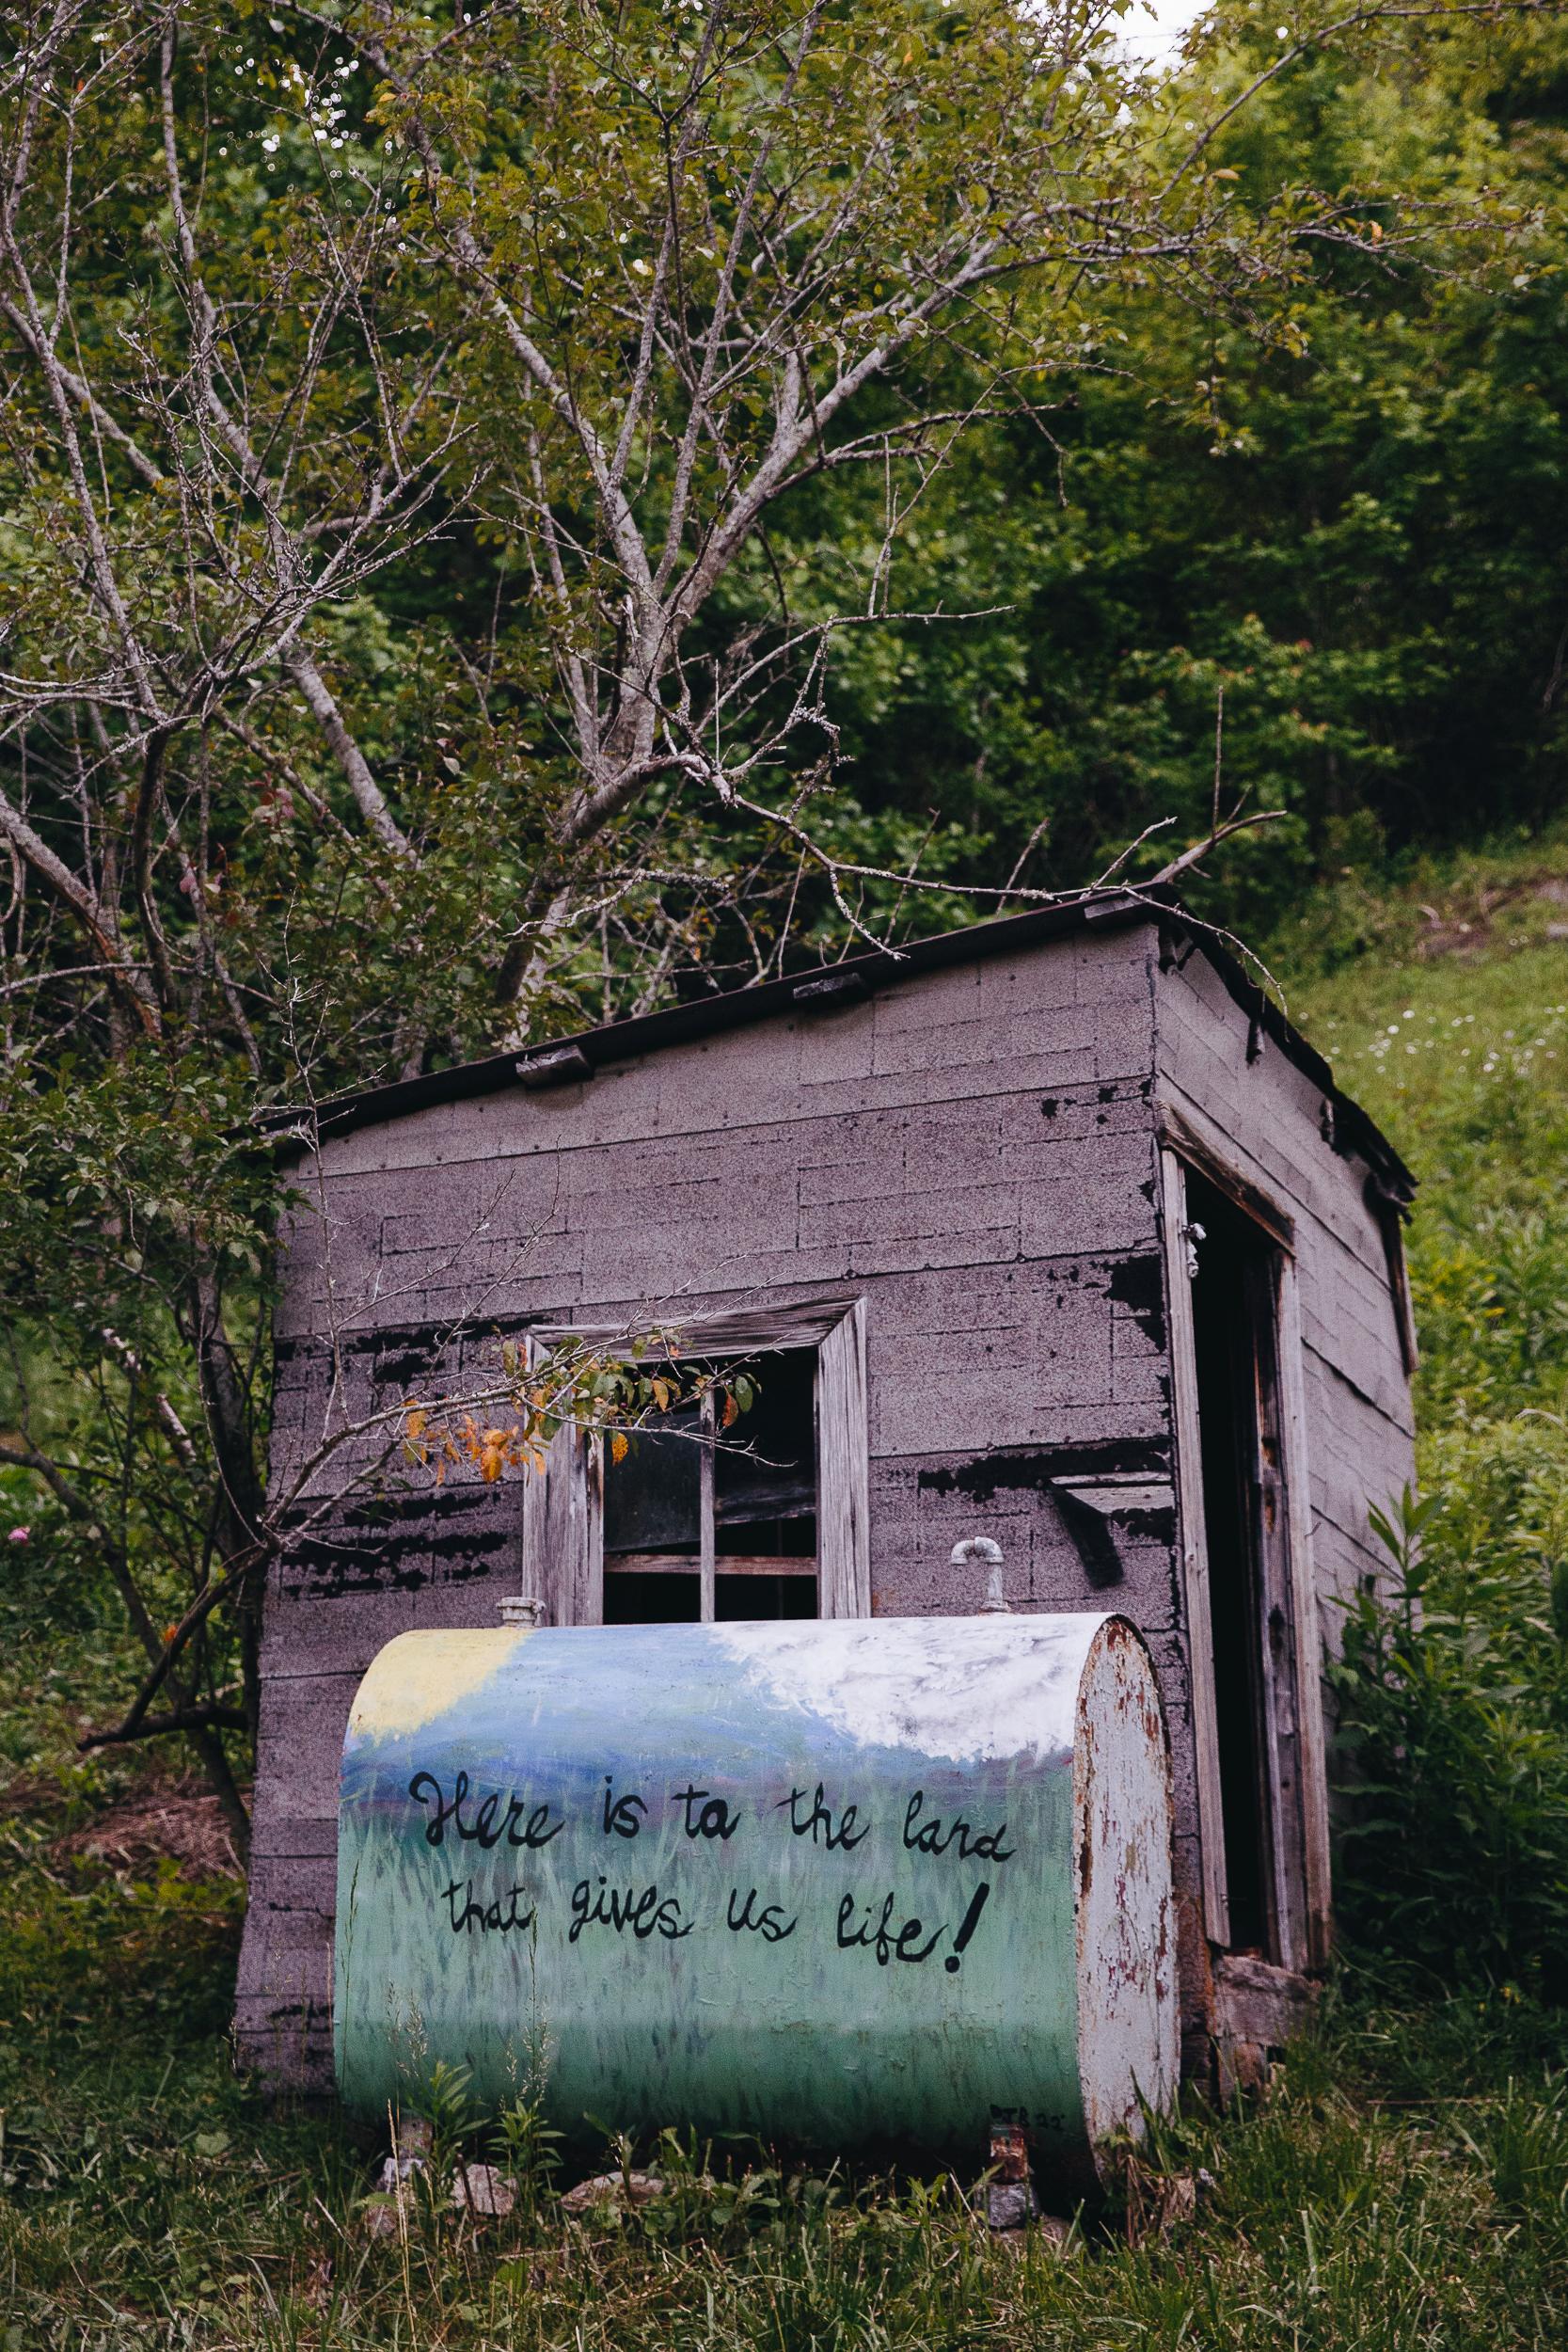 Here is to the land
that gives us life!